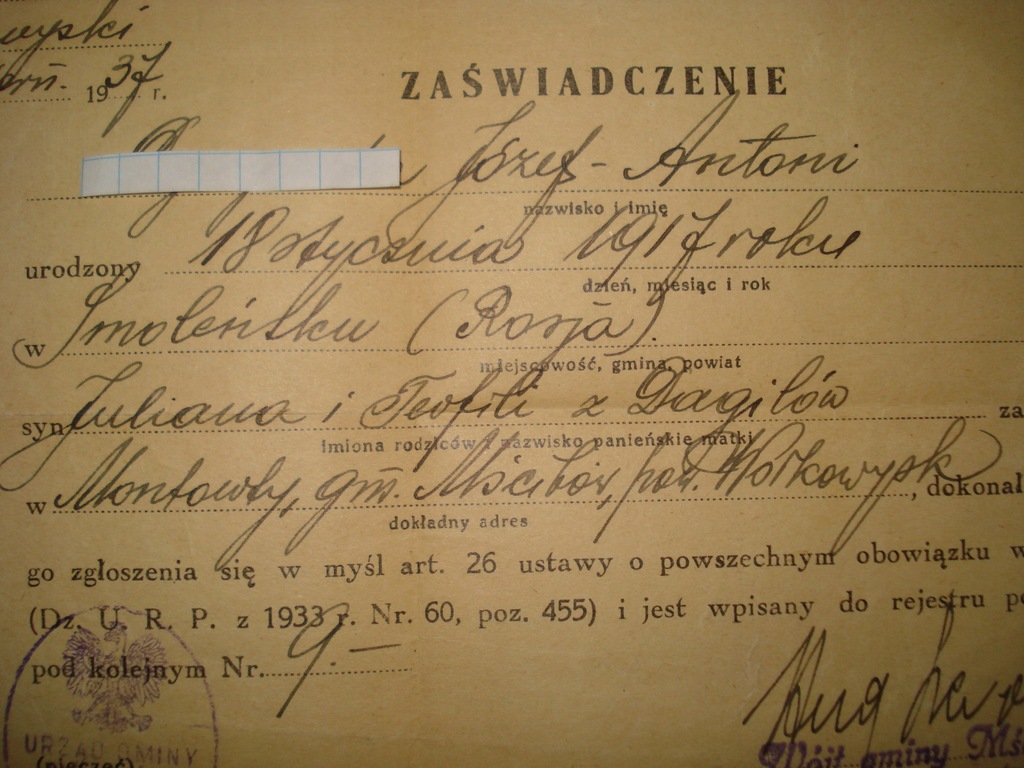 wyski
19 37 r.
ZAŚWIADCZENIE
Józef-Antoni
nazwisko i imię
urodzony 18 stycznia 1917 roku
dzień, miesiąc i rok
w Smoleńsku (Rosja).
miejscowość, gmina, powiat
syn Juliana i Teofili z Dagilów za
imiona rodziców i nazwisko panieńskie matki
w Montowty, gm. Mścibów, pow. Wołkowysk, dokonał
dokładny adres
go zgłoszenia się w myśl art. 26 ustawy o powszechnym obowiązku w
(Dz. U. R. P. z 1933 r. Nr. 60, poz. 455) i jest wpisany do rejestru po
pod kolejnym Nr. 9.—
URZĄD GMINY
(pieczęć)
Wójt gminy Mś